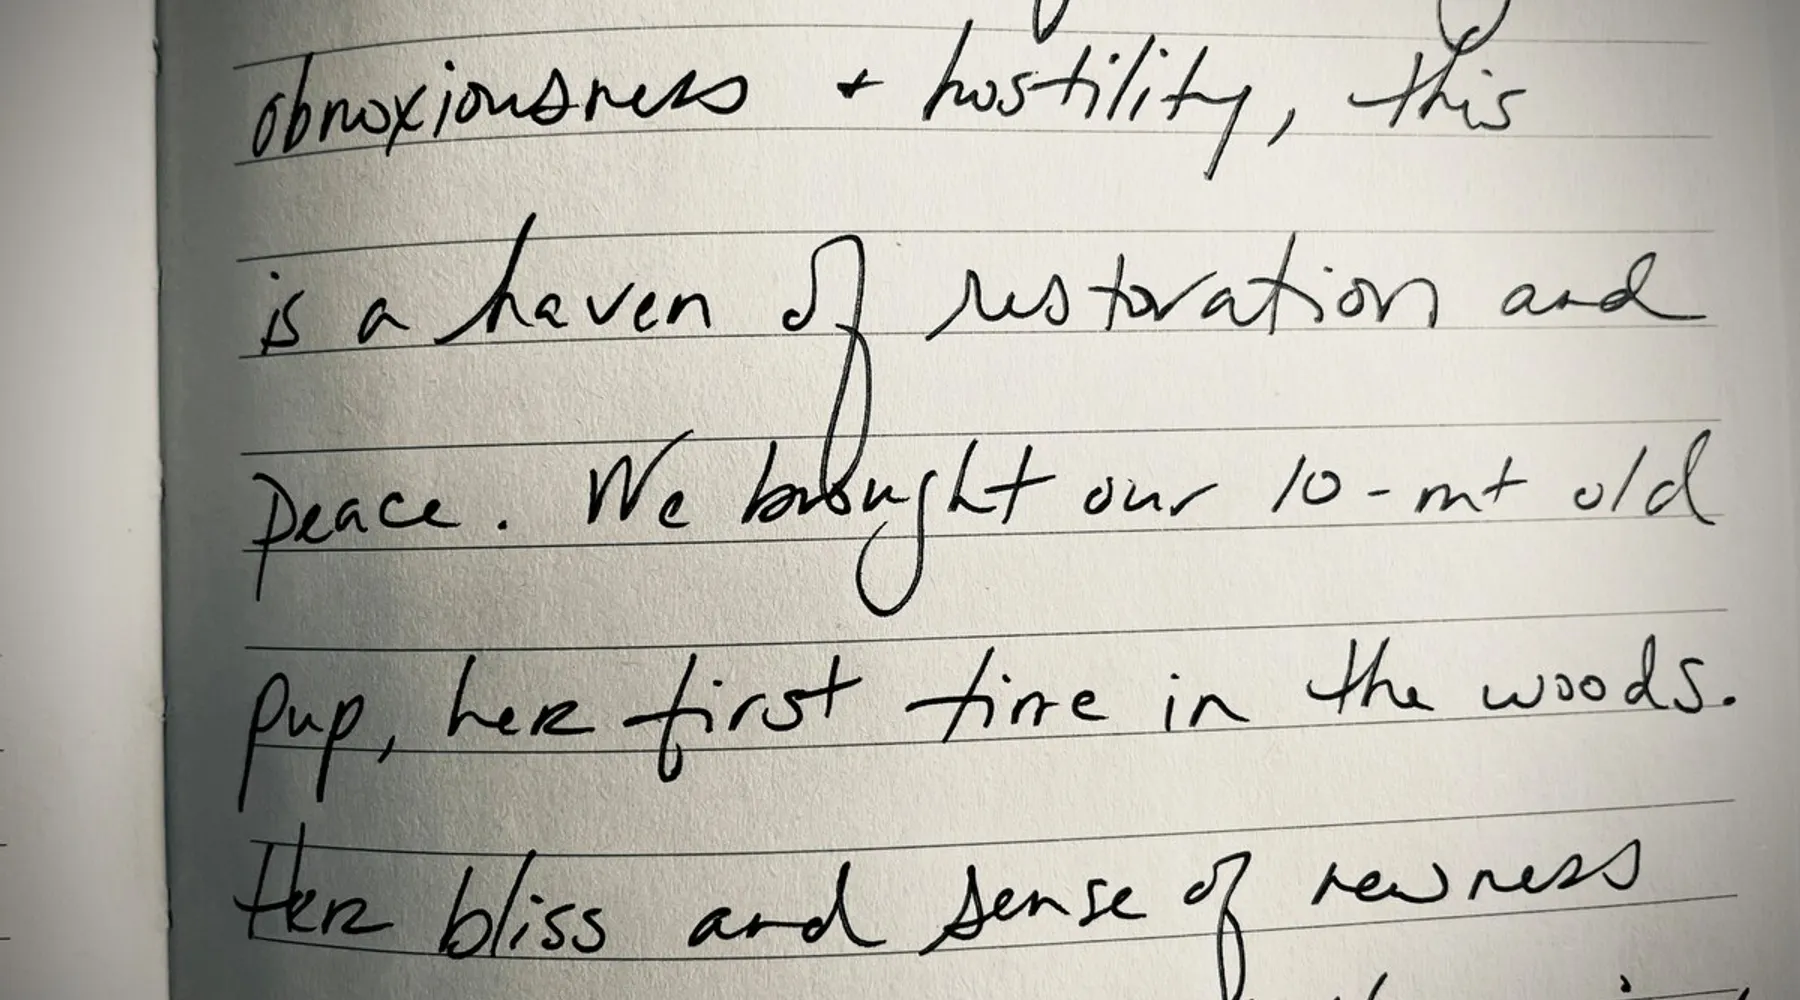 obnoxiousness + hostility, this
is a haven of restoration and
peace. We brought our 10-mt old
pup, her first time in the woods.
Her bliss and sense of newness